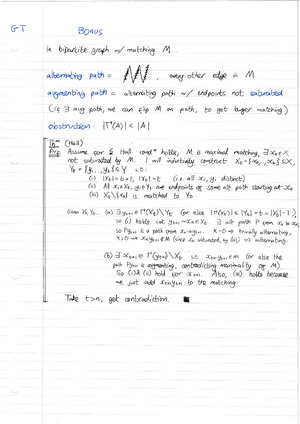 GT BONUS
In bipartite graph w/ matching M...
alternating path = , every other edge in M
augmenting path = alternating path w/ endpoints not saturated
(if ∃ aug path, we can flip M on path, to get larger matching)
obstruction: |Γ(A)| < |A|
Thm (Hall)
Pf: Assume for Hall condⁿ holds, M is maximal matching, ∃ x₀ ∈ X
not saturated by M. I will inductively construct X₀ = {x₀, .., xₖ} ⊆ X,
Y₀ = {y₁, .., yₖ} ⊆ Y s.t:
(i) |X₀| = t+1, |Y₀| = t (i.e. all xᵢ, yᵢ distinct)
(ii) All xᵢ ∈ X₀, yᵢ ∈ Y₀ are endpoints of some alt path starting at x₀
(iii) X₀\{x₀} is matched to Y₀
Given X₀, Y₀... (a) ∃ yₖ₊₁ ∈ Γ(X₀)\Y₀ (or else |Γ(X₀)| ≤ |Y₀| = t = |X₀| - 1),
so (i) holds. Let ∃ alt path P from x₀ to
so is a path from k=0 → trivially alternating,
(since by (iii)) ⇒ alternating.
(b) ∃ \ X₀ s.t. ∈ M (or else the
path is augmenting, contradicting maximality of M).
So (i) & (ii) hold for Also, (iii) holds because
we just add to the matching.
Take t>n, get contradiction. ■